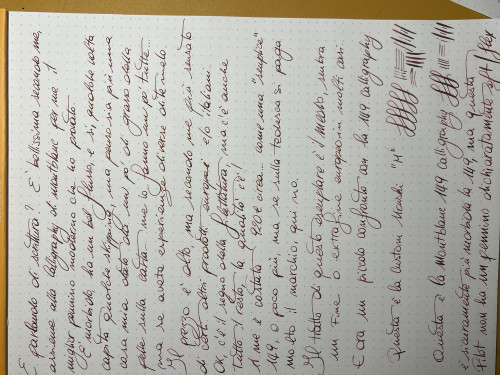 E parlando di scrittura? E' bellissima secondo me,
assieme alla Calligraphy di Montblanc per me il
miglior pennino moderno che ho provato.
E' morbido, ha un bel flusso, e sì, qualche volta
capita qualche skipping, ma penso sia più una
cosa mia data da un pò di grasso della
pelle sulla carta... me lo fanno un po' tutte...
ma se avete esperienze diverse ditemelo.
Il prezzo è alto, ma secondo me più sensato
di certi altri prodotti europei e/o italiani.
Ok, c'è il segno della fusione, ma c'è anche
tutto il resto, la qualità c'è!
A me è costata 920€ circa... come una "semplice"
149, o poco più, ma se sulla tedesca si paga
molto il marchio, qui no.
Il tratto di questo esemplare è il medio, sembra
un Fine o extrafine europeo in molti casi.
E ora un piccolo confronto con la 149 calligraphy
Questa è la Custom Urushi "M"
Questa è la Montblanc 149 Calligraphy
è sicuramente più morbida la 149, ma questa
Pilot non ha un pennino dichiaratamente soft/flex